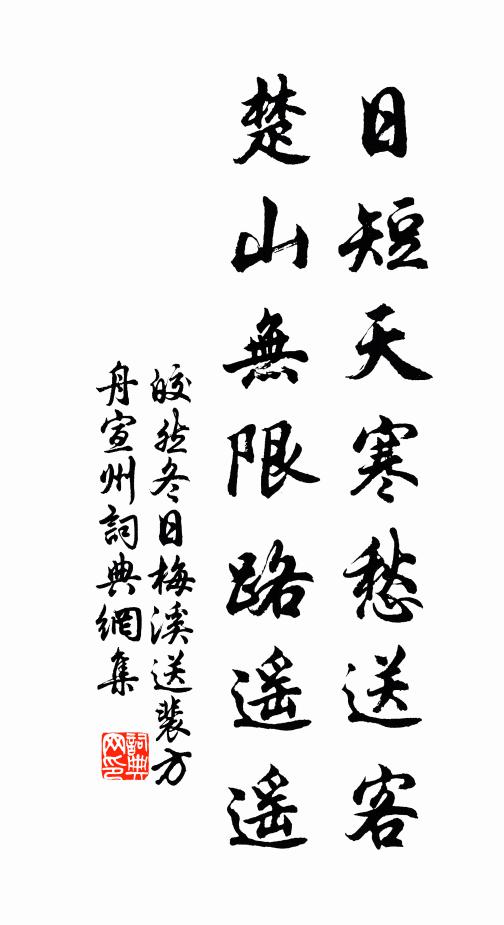 日短天寒愁送客
楚山無限路遥遥
皎然冬日梅溪送裴方
舟宣州詞典網集
詞典网印